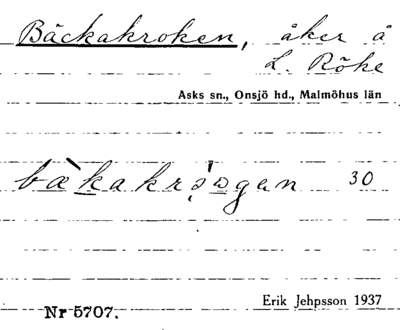 Bäckakroken, åker å
L. Röke
Asks sn., Onsjö hd., Malmöhus län
30
Erik Jehpsson 1937
Nr 5707.